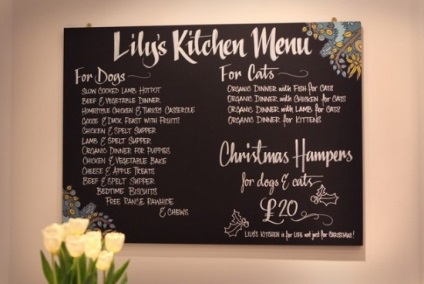 Lily's Kitchen Menu
For Dogs
SLOW COOKED LAMB HOTPOT
BEEF & VEGETABLE DINNER
HOMESTYLE CHICKEN & TURKEY CASSEROLE
GOOSE & DUCK FEAST WITH FRUITS
CHICKEN & SPELT SUPPER
LAMB & SPELT SUPPER
ORGANIC DINNER FOR PUPPIES
CHICKEN & VEGETABLE BAKE
CHEESE & APPLE TREATS
BEEF & SPELT SUPPER
BEDTIME BISCUITS
FREE RANGE RAWHIDE
& CHEWS
For Cats
ORGANIC DINNER with FISH for CATS
ORGANIC DINNER with CHICKEN for CATS
ORGANIC DINNER with LAMB for CATS
ORGANIC DINNER for KITTENS
Christmas Hampers
for dogs & cats
£20
LILY'S KITCHEN is for LIFE not just for CHRISTMAS!